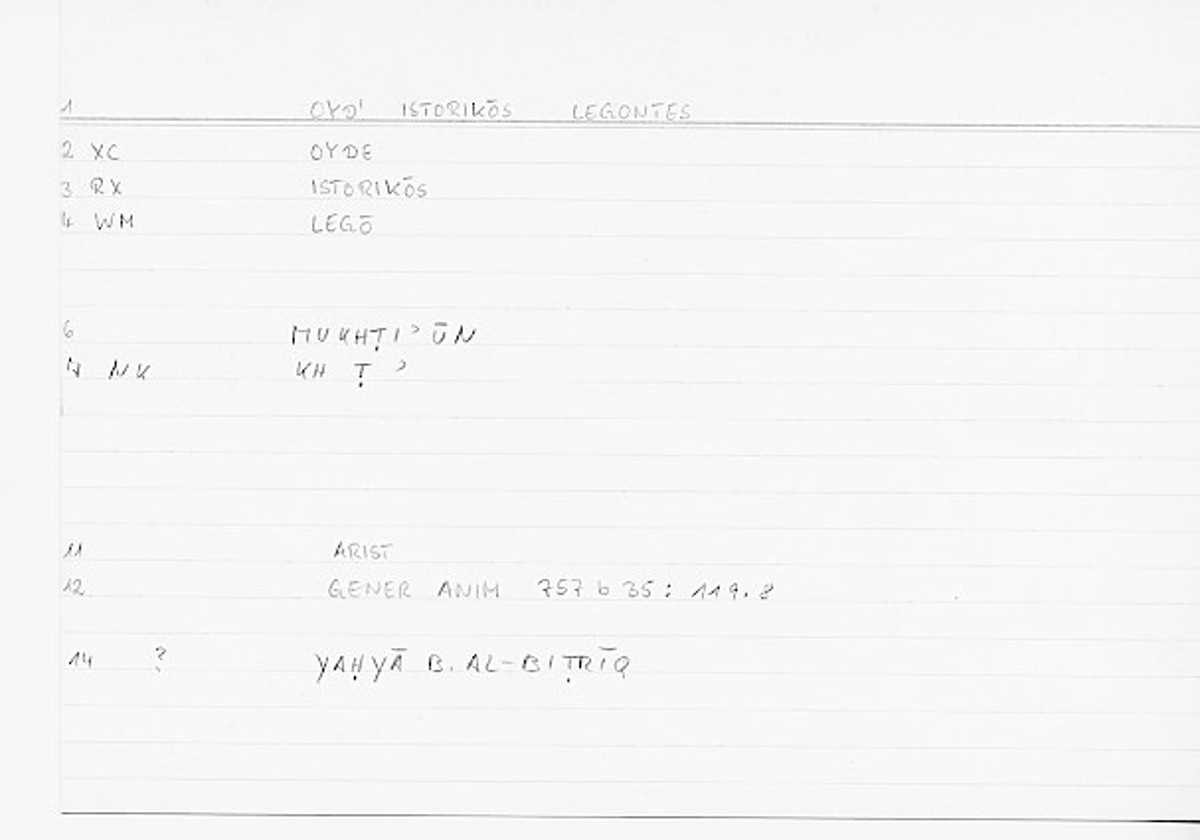 1 OYD' ISTORIKŌS LEGONTES
2 XC OYDE
3 RX ISTORIKŌS
4 WM LEGŌ
6 MUKHṬIʾŪN
NK KH Ṭ ʾ
11 ARIST
12 GENER ANIM 757 b 35 : 119.8
14 ? YAḤYĀ B. AL-BIṬRĪQ